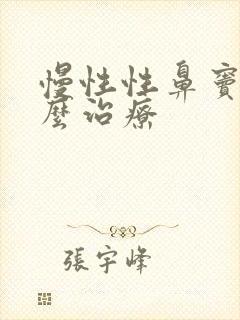 慢性性鼻竇
麼治療
張宇峰